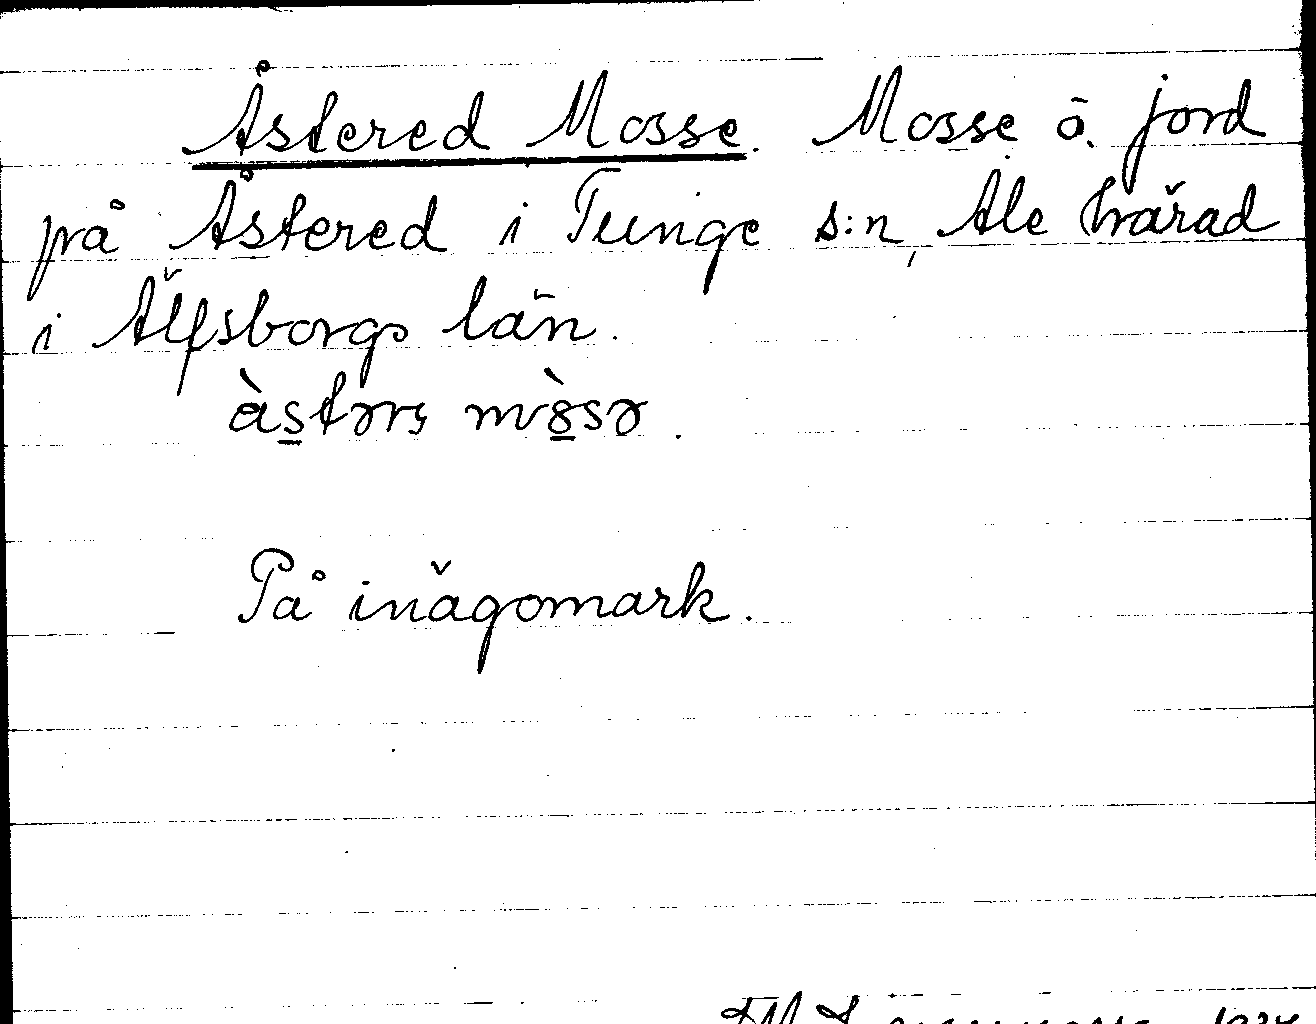 Åstered Mosse. Mosse ö. jord
på Åstered i Tunge s:n, Ale härad
i Älfsborgs län.
às̱tərs̩ mò̱sə.
På inägomark.